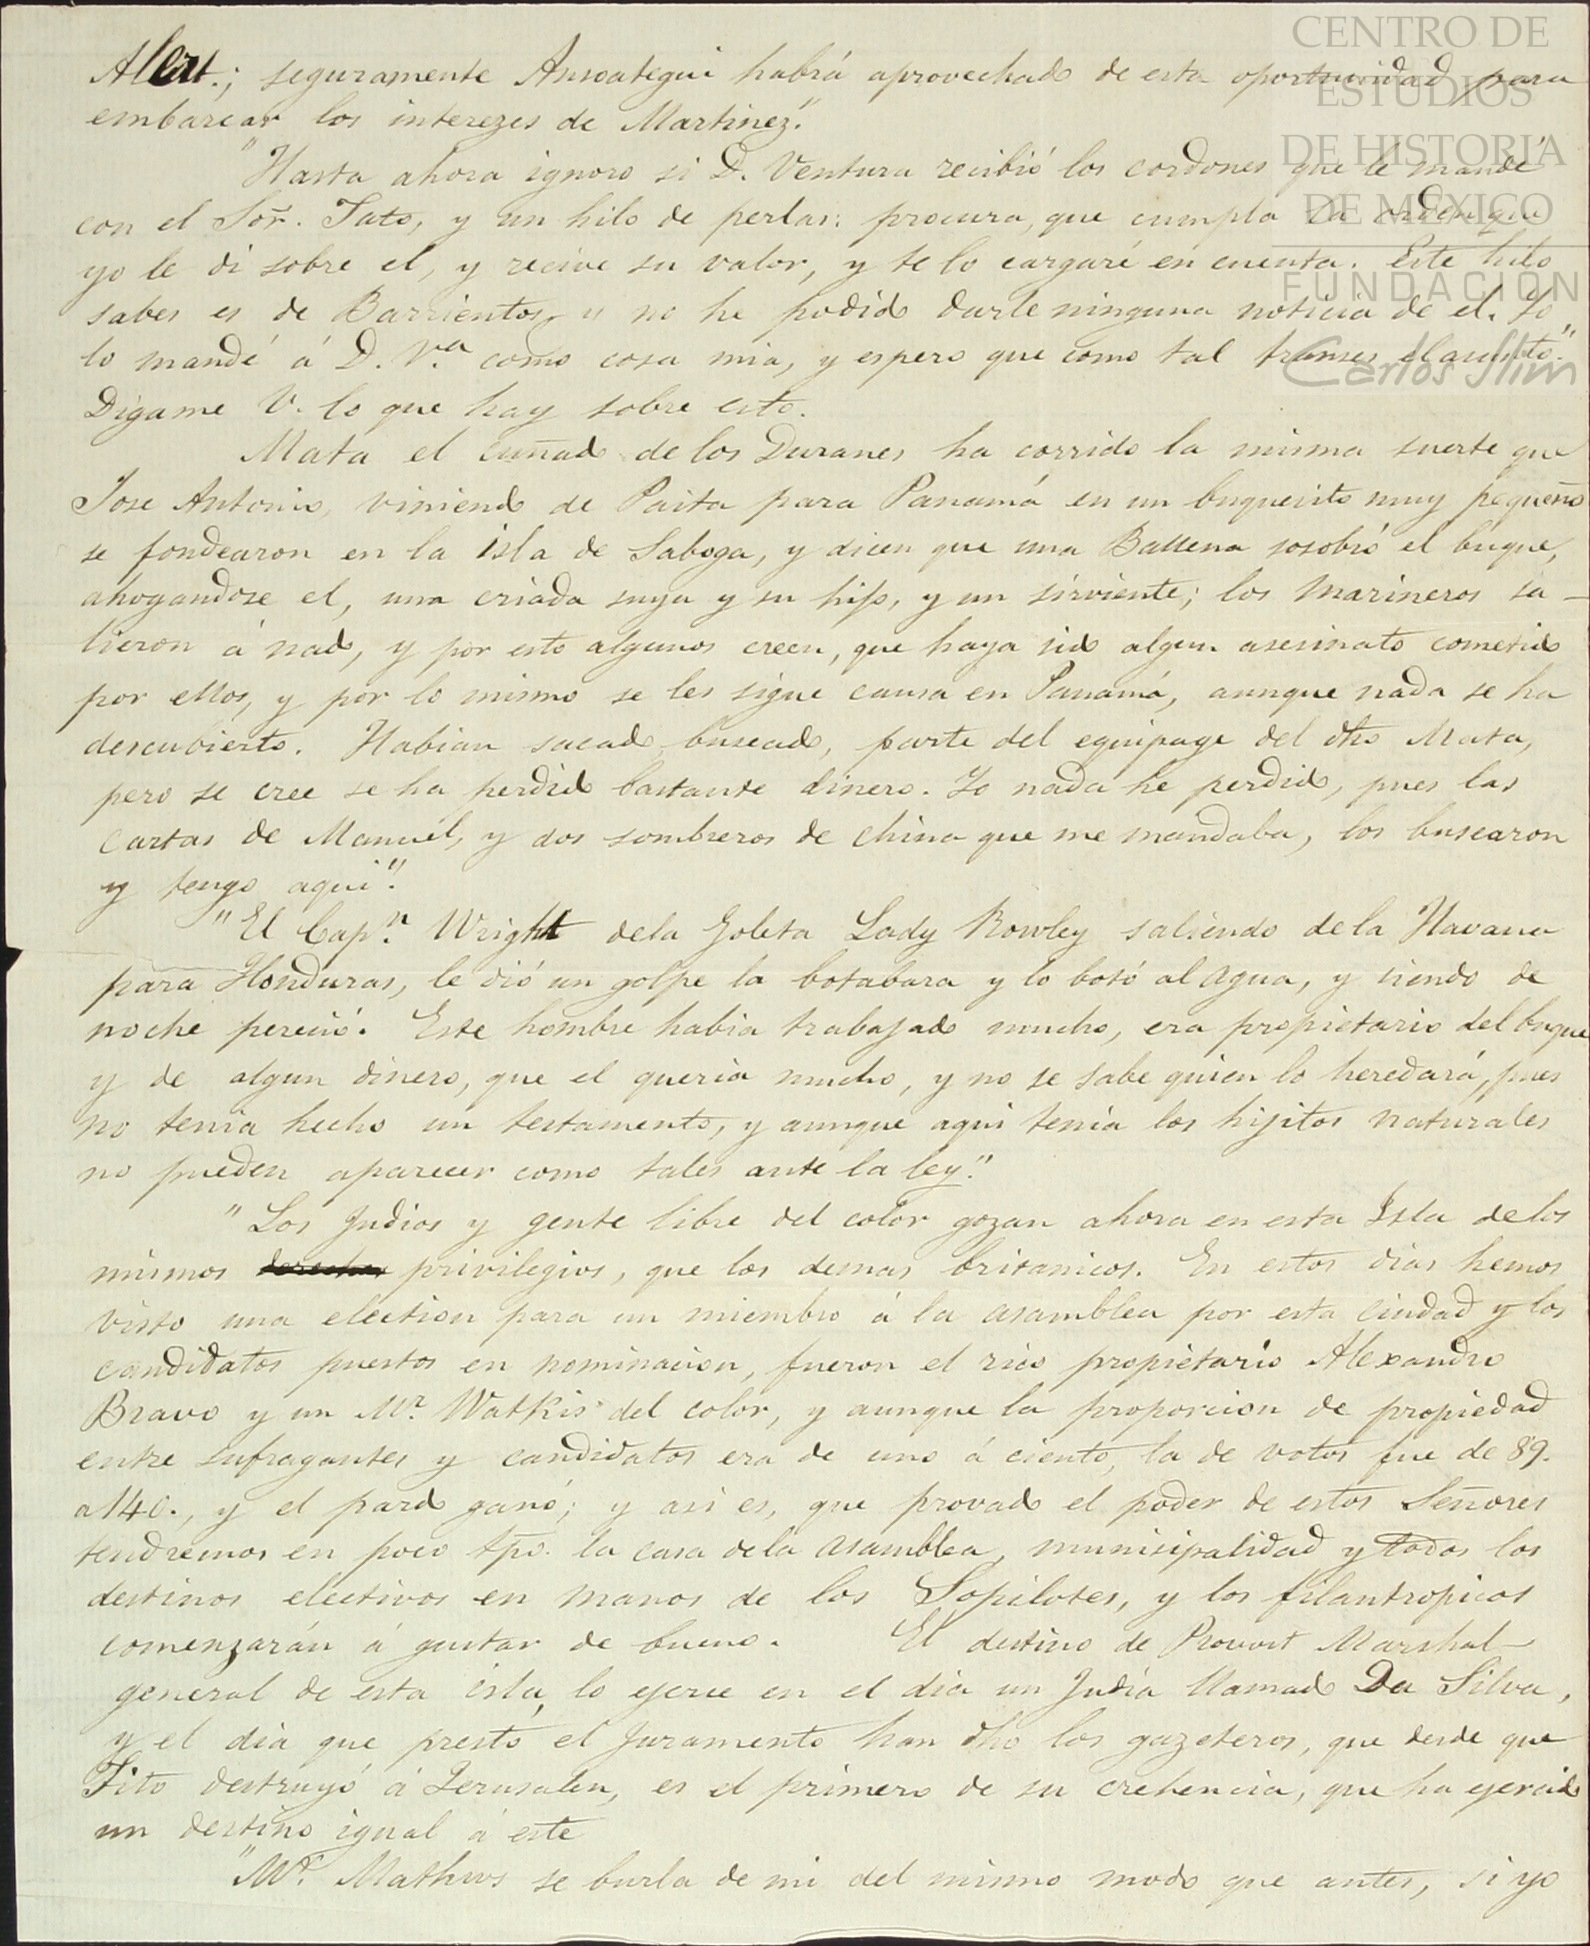 CENTRO DE
ESTUDIOS
DE HISTORIA
DE MÉXICO
FUNDACIÓN
Carlos Slim
Alert.; seguramente Ansoategui habrá aprovechado de esta oportunidad para
embarcar los interezes de Martinez."
"Hasta ahora ignoro si D. Ventura recibió los cordones que le mandé
con el Sor. Tato, y un hilo de perlas: procura, que cumpla la orden que
yo le di sobre el, y recive su valor, y te lo cargaré en cuenta. Este hilo
sabes es de Barrientos y no he podido darle ninguna noticia de el. Yo
lo mandé á D. Va. como cosa mia, y espero que como tal transes el asunto."
Digame V. lo que hay sobre esto.
Mata el cuñado de los Duranes ha corrido la misma suerte que
Jose Antonio, viniendo de Paita para Panamá en un buquesito muy pequeño
se fondearon en la isla de Saboga, y dicen que una Ballena sosobró el buque,
ahogandose el, una criada suya y su hijo, y un sirviente; los marineros sa-
lieron á nado, y por esto algunos creen, que haya sido algun asesinato cometido
por ellos, y por lo mismo se les sigue causa en Panamá, aunque nada se ha
descubierto. Habian sacado, buseado, parte del equipage del dho Mata,
pero se cree se ha perdido bastante dinero. Yo nada he perdido, pues las
cartas de Manuél, y dos sombreros de china que me mandaba, los busearon
y tengo aqui".
"El Capn. Wright dela Goleta Lady Rowley saliendo dela Havana
para Honduras, le dió un golpe la botabara y lo botó al agua, y siendo de
noche pereció. Este hombre habia trabajado mucho, era propietario del buque
y de algun dinero, que el queria mucho, y no se sabe quien lo heredará, pues
no tenia hecho un testamento, y aunque aqui tenia los hijitos naturales
no pueden aparecer como tales ante la ley."
"Los Judios y gente libre del color gozan ahora en esta Isla delos
mismos derechos privilegios, que los demas britanicos. En estos dias hemos
visto una election para un miembro á la asamblea por esta Ciudad y los
candidatos puestos en nominacion, fueron el rico propietario Alexandro
Bravo y un Mr. Watkis del color, y aunque la proporcion de propiedad
entre sufragantes y candidatos era de uno á ciento, la de votos fue de 89.
a 140., y el pardo ganó; y asi es, que provado el poder de estos Señores
tendremos en poco tpo. la casa dela asamblea, munisipalidad y todos los
destinos electivos en manos de los Sopilotes, y los filantropicos
comenzarán á gustar de bueno. El destino de Provost Marshal
general de esta isla, lo ejerce en el dia un Judia llamado Da Silva,
y el dia que presto el juramento han dho los gazeteros, que desde que
Tito destruyó á Jerusalen, es el primero de su crehencia, que ha ejercido
un destino igual á este
"Mr. Mathws se burla de mi del mismo modo que antes, si yo